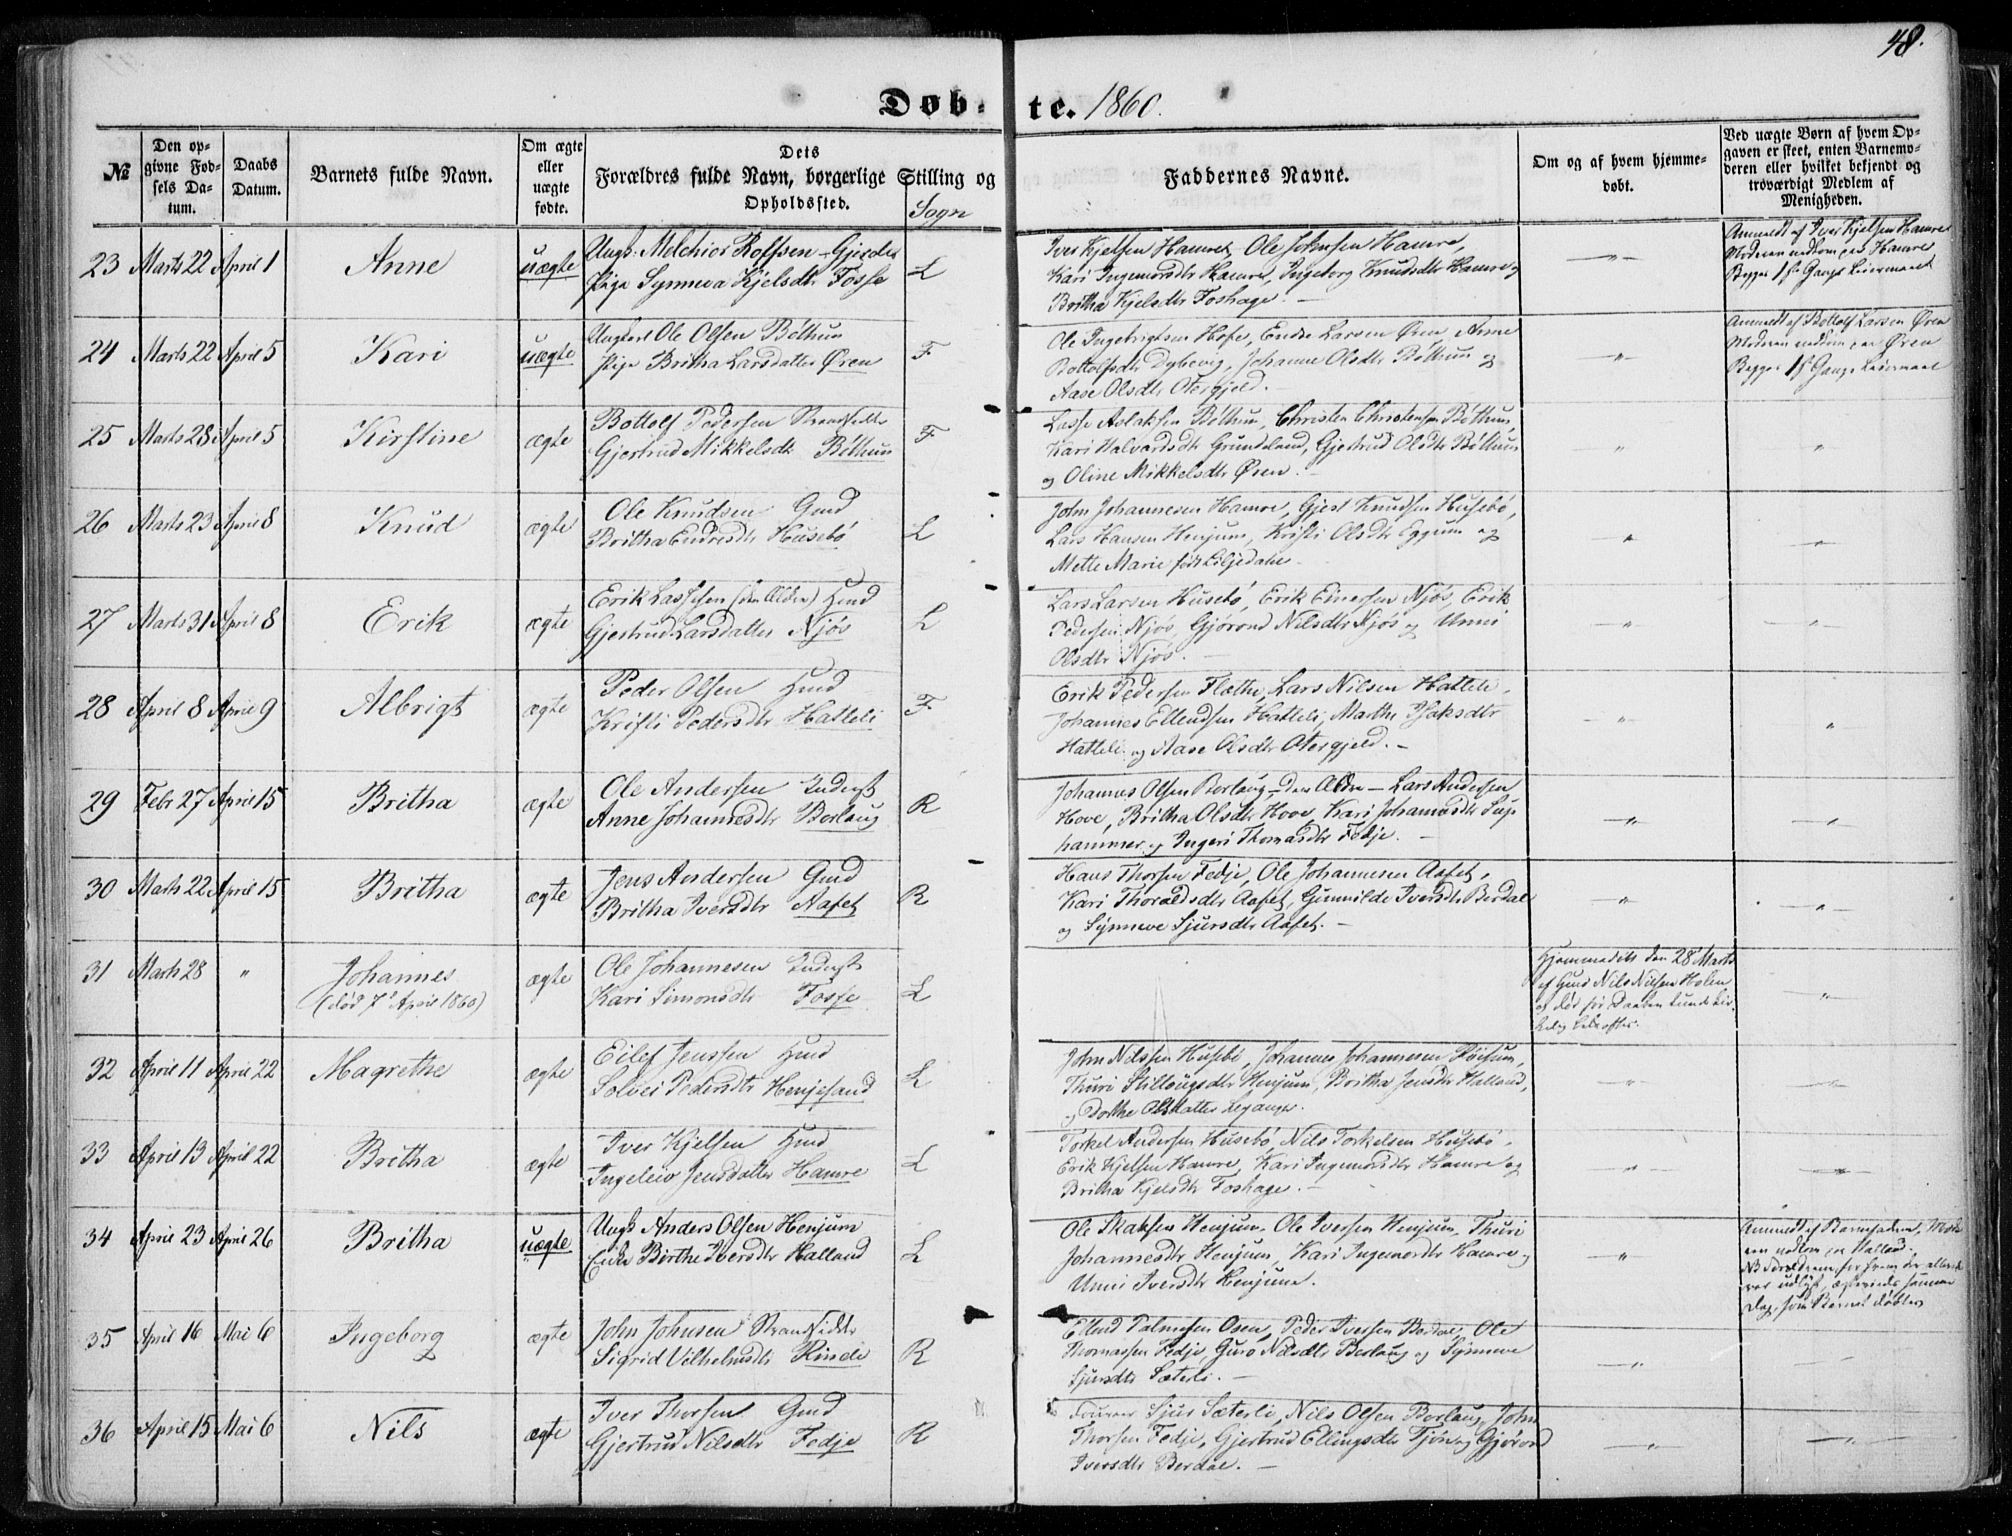 48.
Døb- te. 1860.
№
Den op-
givne Fød-
sels Da-
tum.
Daabs
Datum.
Barnets fulde Navn.
Om ægte
eller
uægte
fødte.
Dets
Forældres fulde Navn, borgerlige Stilling og
Opholdssted.
Sogn
Faddernes Navne.
Om og af hvem hjemme-
døbt.
Ved uægte Børn af hvem Op-
gaven er skeet, enten Barnemo-
deren eller hvilket bekjendt og
troværdigt Medlem af
Menigheden.
23 Marts 22 April 1 Anne uægte
Ungk. Melchior Rolfsen Gjerde
Pige Synneva Kjelsdtr Fosse L
Iver Kjelsen Hamre, Ole Johnsen Hamre,
Kari Ingemorsdtr Hamre, Ingeborg Knudsdtr Hamre og
Britha Kjelsdtr Foshage. —
Anmeldt af Iver Kjelsen Hamre
Moderen
Begges 1ste Gangs Leiermaal
24 Marts 22 April 5 Kari uægte
Ungkarl Ole Olsen Bøthun
Pige Britha Larsdatter Øren F
Ole Ingebrigtsen Hofe, Endre Larsen Øren, Anne
Bottolfsdtr Dybevig, Johanne Olsdtr Bøthun og
Aase Olsdtr Otergjeld. —
Anmeldt af Bottolf Larsen Øren
Moderen
Begges 1ste Gangs Leiermaal
25 Marts 28 April 5 Kirstine ægte
Bottolf Pedersen Strandsidder
Gjertrud Mikkelsdtr Bøthun F
Lasse Aslaksen Bøthun, Christen Christensen Bøthun,
Kari Halvardsdtr Grundeland, Gjertrud Olsdtr Bøthun
og Oline Mikkelsdtr Øren. —
26 Marts 23 April 8 Knud ægte
Ole Knudsen Gmd
Britha Endresdtr Husebø L
John Johannesen Hamre, Gjest Knudsen Husebø,
Lars Hansen Henjum, Kristi Olsdtr Eggum og
Mette Marie født Liljedahl
27 Marts 31 April 8 Erik ægte
Erik Lassesen (den Ældre) Hmd
Gjertrud Larsdatter Njøs L
Lars Larsen Husebø, Erik Einersen Njøs, Erik
Pedersen Njøs, Gjørond Nilsdtr Njøs og Unni
Olsdtr Njøs. —
28 April 8 April 9 Albrigt ægte
Peder Olsen Hmd
Kristi Pedersdtr Hatleli F
Erik Pedersen Flathe, Lars Nilsen Hatleli,
Johannes Ellendsen Hatleli, Marthe Isaksdtr
Hatleli og Aase Olsdtr Otergjeld. —
29 Febr 27 April 15 Britha ægte
Ole Andersen Inderst
Anne Johannesdtr Borlaug R
Johannes Olsen Borlaug, den Ældre — Lars Andersen
Hove, Britha Olsdtr Hove, Kari Johannesdtr Sup-
hammer og Ingeri Thomasdtr Fedje. —
30 Marts 22 April 15 Britha ægte
Jens Andersen Gmd
Britha Iversdtr Aafet R
Hans Thorsen Fedje, Ole Johannesen Aafet,
Kari Thoraldsdtr Aafet, Gunnilde Iversdtr Berdal
og Synneve Sjursdtr Aafet. —
31 Marts 28 " Johannes
(død 7de April 1860) ægte
Ole Johannesen Inderst
Kari Simonsdtr Fosse L
Hjemmedøbt den 28 Marts
af Gmd Nils Nilsen Holen
og død før Daaben kunde kir-
kelig bekræftes.
32 April 11 April 22 Magrethe ægte
Eilef Jenssen Hmd
Solvei Pedersdtr Henjesand L
John Nilssen Husebø, Johannes Johannesen
Thuri Stillougsdtr Henjum, Britha Jensdtr Halland,
og Dorthe Olsdatter Leganger.
33 April 13 April 22 Britha ægte
Iver Kjelsen Hmd
Ingeleiv Jensdatter Hamre L
Torkel Andersen Husebø, Nils Torkelsen Husebø,
Erik Kjelsen Hamre, Kari Ingemorsdtr Hamre og
Britha Kjelsdtr Foshage. —
34 April 23 April 26 Britha uægte
Ungk. Anders Olsen Henjum
Enke Birthe Iversdtr Halland L
Ole Skaksen Henjum, Ole Iversen Henjum, Thuri
Johannesdtr Henjum, Kari Ingemorsdtr Hamre og
Unni Iversdtr Henjum.
Anmeldt af Barnefaderen, Mode-
ren Halland.
NB Forældrene, for hvem der allerede
var udlyst, ægteviedes samme
Dag, som Barnet døbtes
35 April 16 Mai 6 Ingeborg ægte
John Johnsen Strandsidder
Sigrid Vilhelmsdtr Rinde R
Ellend Palmesen Osen, Peder Iversen Berdal, Ole
Thomassen Fedje, Guro Nilsdtr Borlaug og Synneve
Sjursdtr Sæterli. —
36 April 15 Mai 6 Nils ægte
Iver Thorsen Gmd
Gjertrud Nilsdtr Fedje R
Sjur Sæterli, Nils Olsen Borlaug, John
Thorsen Fedje, Gjertrud Ellingsdtr Tjøn og Gjørond
Iversdtr Berdal. —